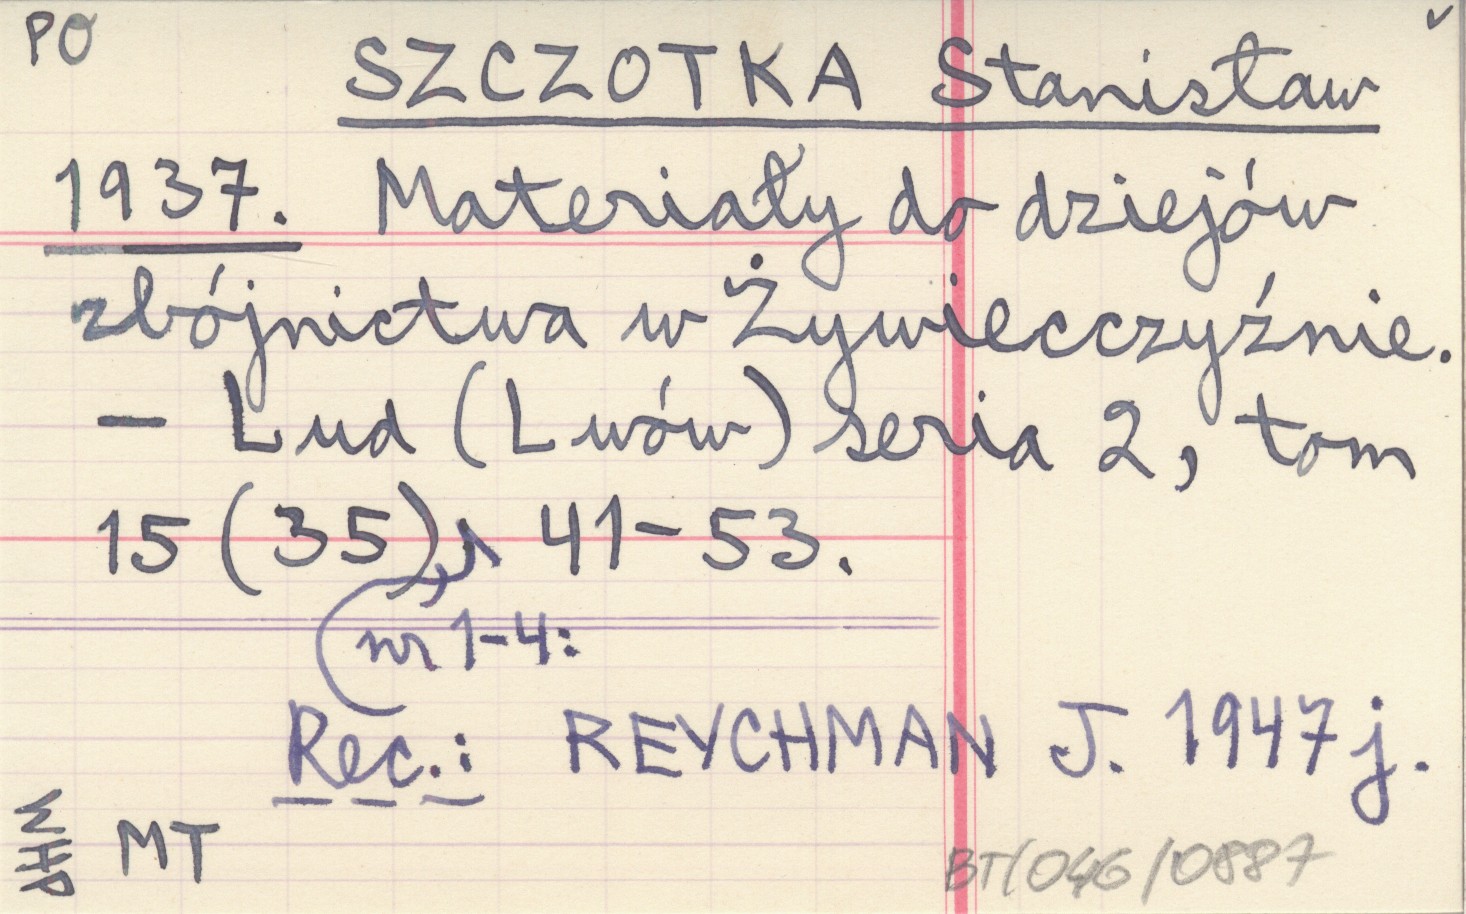 PO
SZCZOTKA Stanisław
1937. Materiały do dziejów
zbójnictwa w Żywiecczyźnie.
— Lud (Lwów) seria 2, tom
15 (35), 41-53.
nr 1-4:
Rec.: REYCHMAN J. 1947 j.
WHP
MT
BT/046/0887